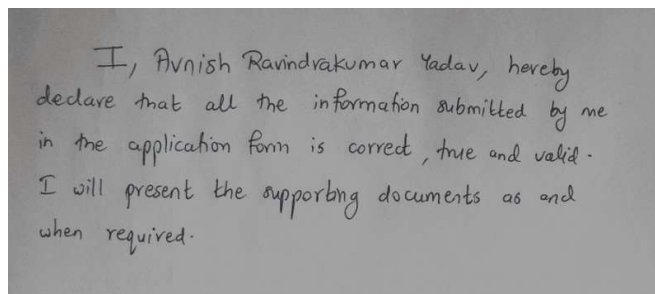 I, Avnish Ravindrakumar Yadav, hereby
declare that all the information submitted by me
in the application form is correct, true and valid.
I will present the supporting documents as and
when required.